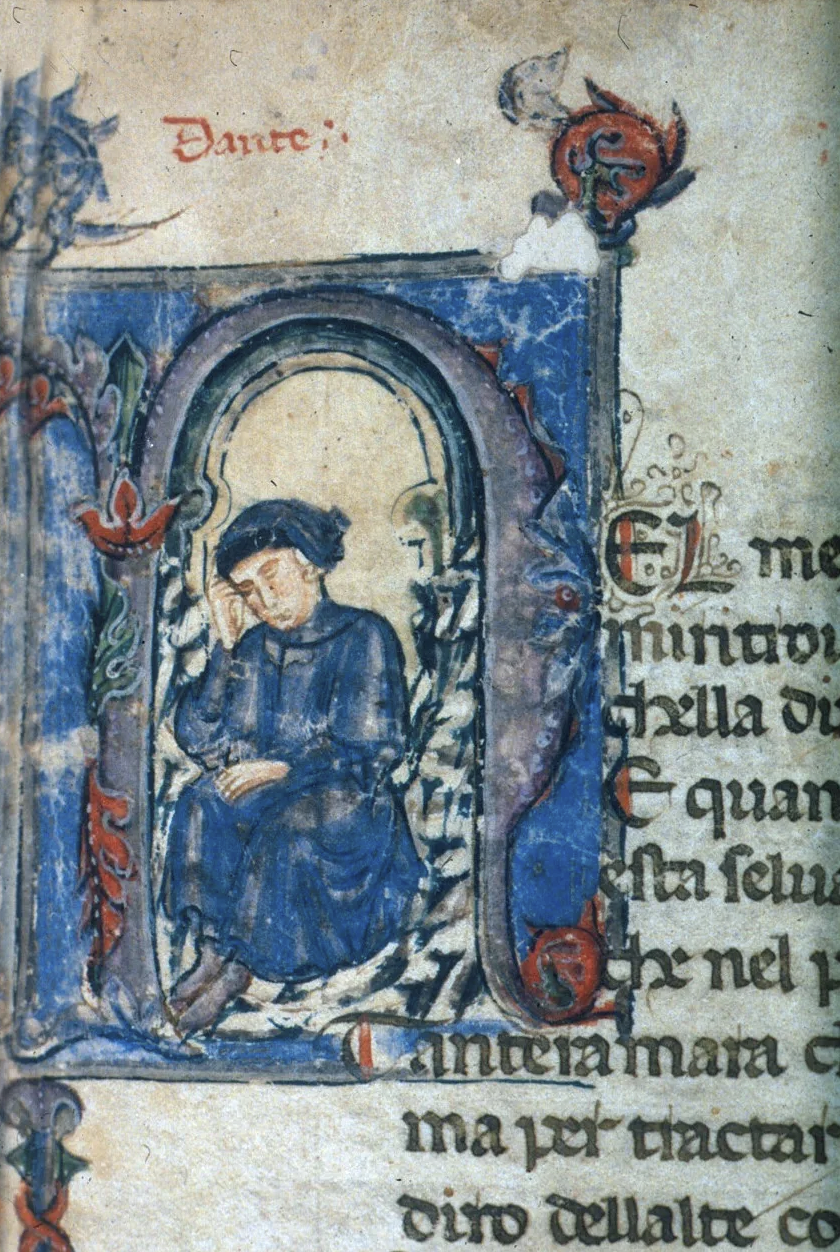 Dante
NEL me
miritrou
chella di
E quan
esta selua
che nel p
Tanteramara c
ma per tractar
diro dellalte co